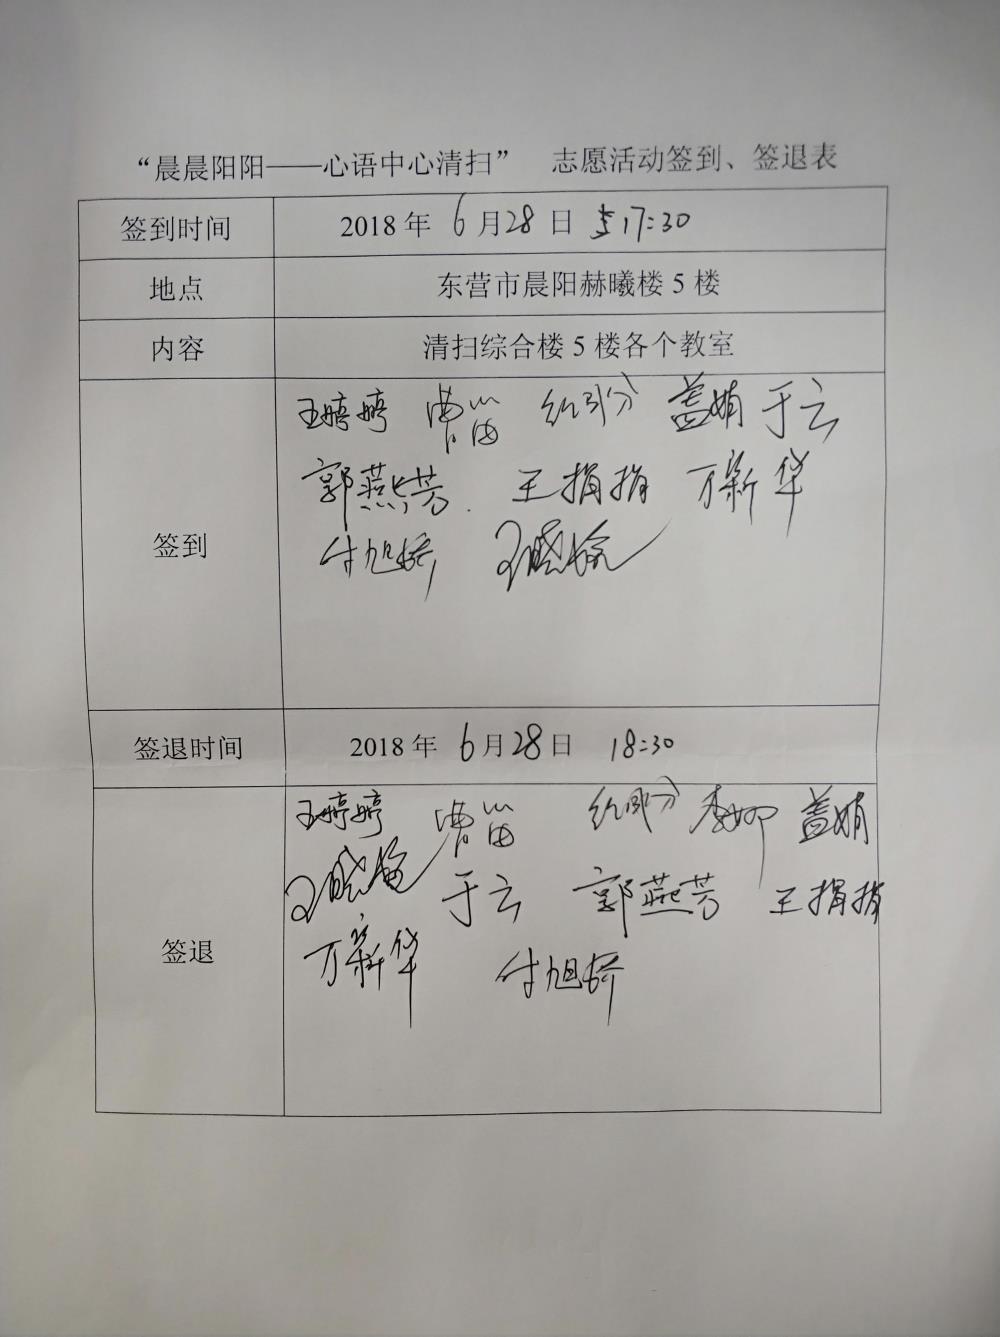 “晨晨阳阳——心语中心清扫” 志愿活动签到、签退表
签到时间 2018年 6月28日 17:30
地点 东营市晨阳赫曦楼5楼
内容 清扫综合楼5楼各个教室
王婷婷 曹笛 盖娟 于云
郭燕芳 王捐捐 万新华
签到
付旭娇
签退时间 2018年 6月28日 18:30
王婷婷 曹笛 李娜 盖娟
于云 郭燕芳 王捐捐
签退
万新华 付旭娇